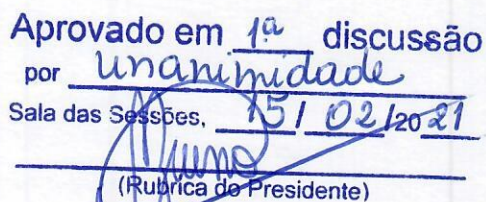 Aprovado em 1ª discussão
por unanimidade
Sala das Sessões, 15/ 02/2021
(Rubrica do Presidente)